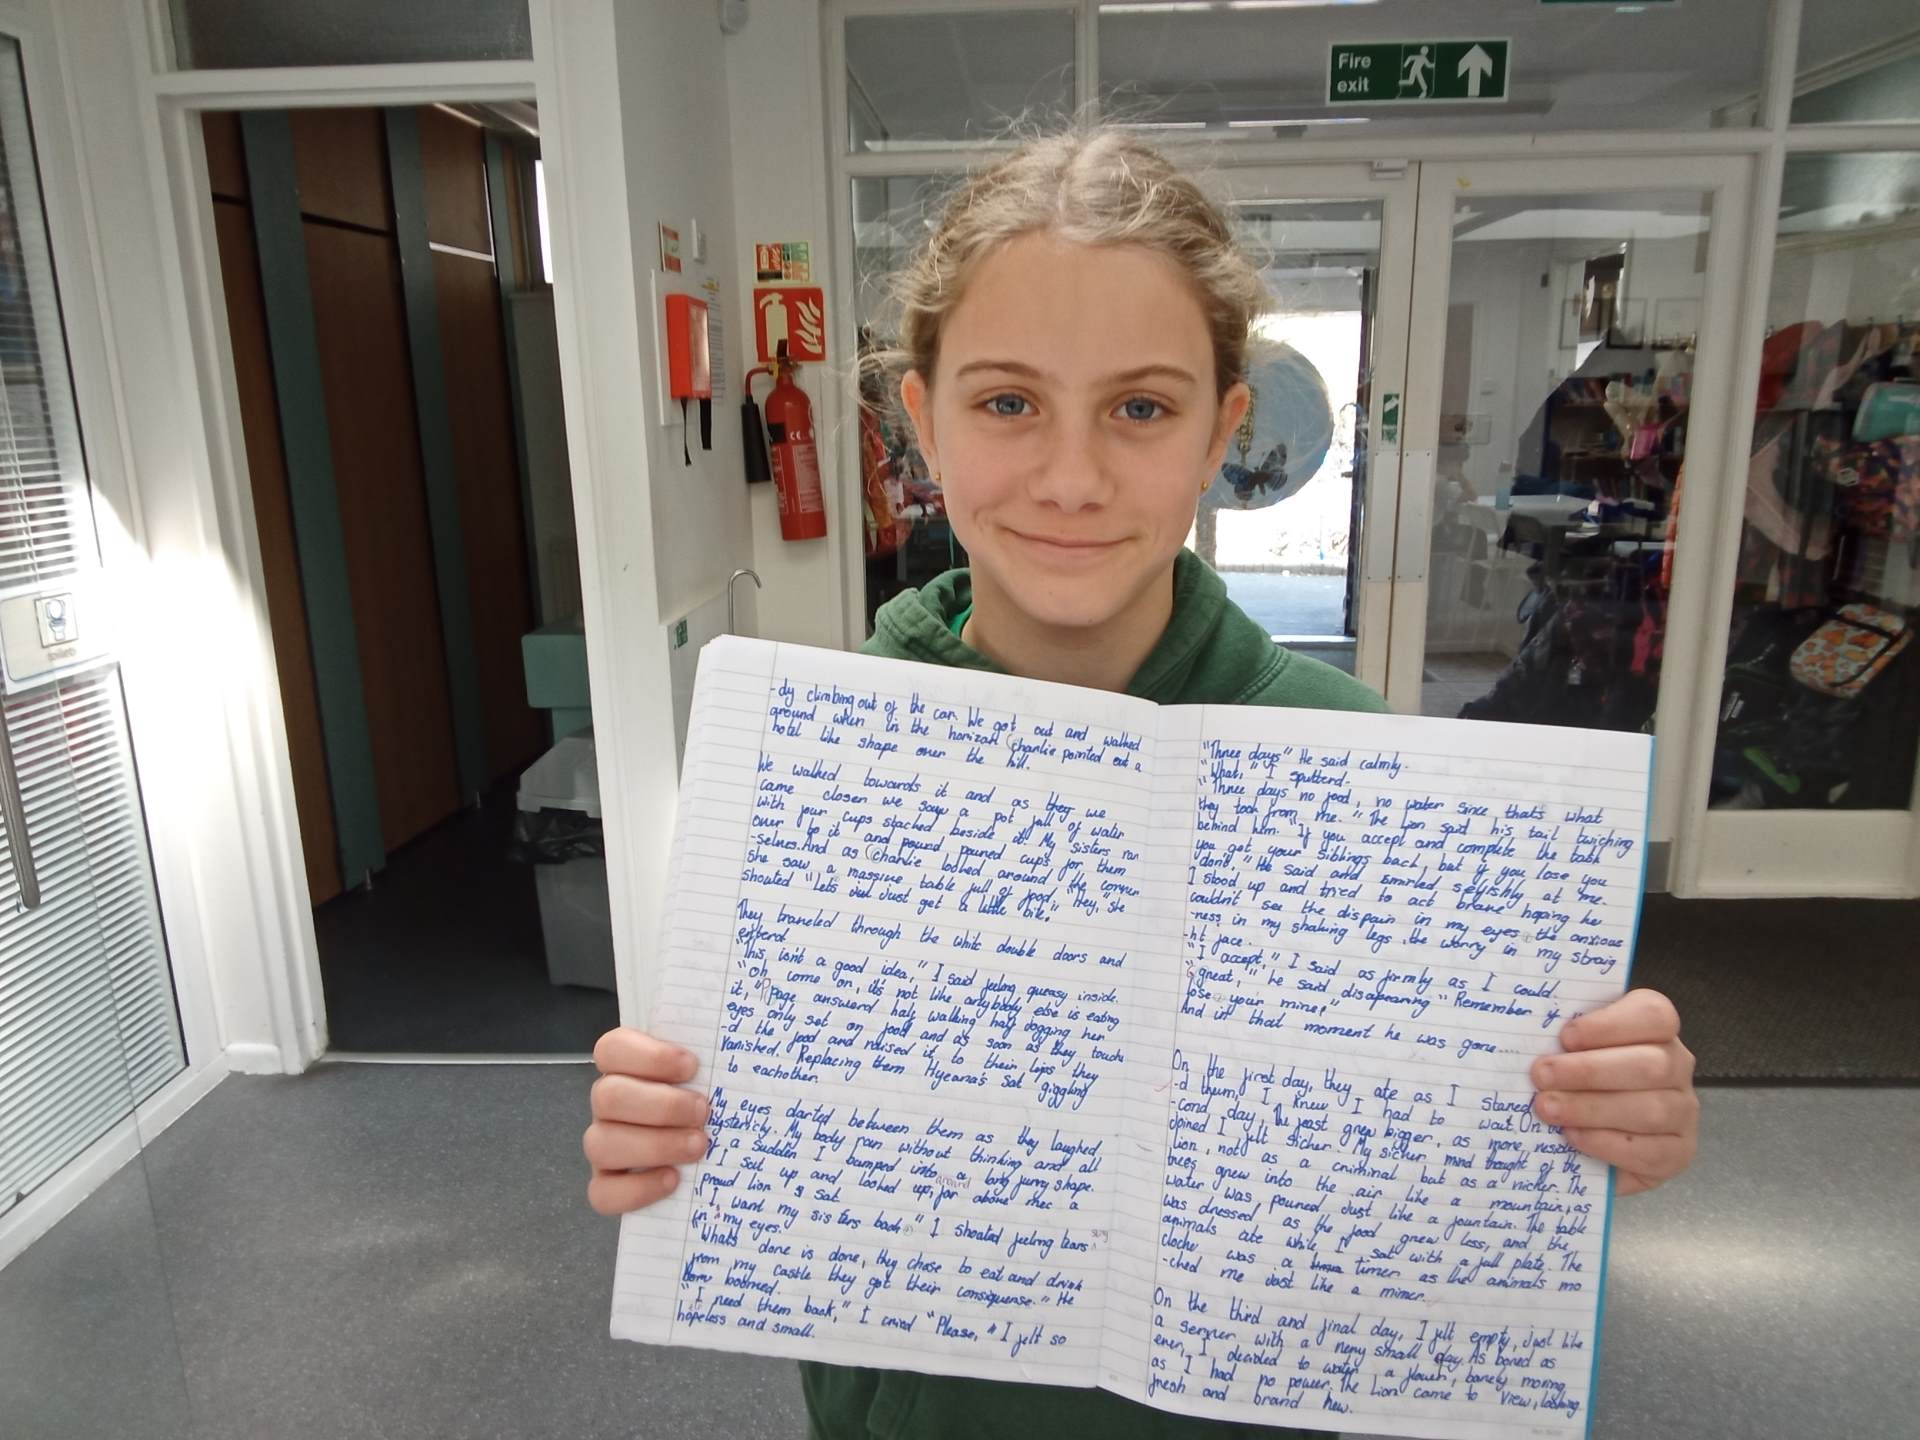 Fire
exit
toilets
-dy climbing out of the car. We got out and walked
around when in the horizan Charlie pointed out a
hotel like shape over the hill.
We walked towards it and as they we
came closer we saw a pot full of water
with four cups stacked beside it. My sisters ran
over to it and pound poured cups for them
-selves. And as Charlie looked around the corner
she saw a massive table full of food. "Hey," she
shouted "Lets just get a little bite."
They traveled through the white double doors and
enterd.
"This isn't a good idea," I said feeling queasy inside.
"Oh come on, it's not like anybody else is eating
it," Page answerd half walking half jogging her
eyes only set on food and as soon as they touche
-d the food and raised it to their lips they
vanished. Replacing them Hyeana's sat giggling
to eachother.
My eyes darted between them as they laughed
hystericly. My body ran without thinking and all
of a sudden I bumped into a large furry shape.
I sat up and looked up, far above me a
proud lion sat.
"I want my sisters back" I shouted feeling tears
in my eyes.
"Whats done is done, they chose to eat and drink
from my castle they got their consiquense." He
boomed.
"I need them back," I cried "Please," I felt so
hopeless and small.
"Three days" He said calmly.
"What," I sputterd.
"Three days no food, no water since thats what
they took from me." The Lion said his tail twiching
behind him. "If you accept and complete the task
you get your siblings back but if you lose you
don't" He said and smirked selfishly at me.
I stood up and tried to act brave hoping he
couldn't see the dispair in my eyes, the anxious
-ness in my shaking legs, the worry in my straig
-ht face.
"I accept," I said as firmly as I could.
"great," he said disapearing "Remember if
lose your mine,"
And in that moment he was gone....
On the first day, they ate as I stared
-d them, I knew I had to wait. On the
-cond day, The feast grew bigger, as more
joined I felt sicker. My sicker mind thought of the
lion, not as a criminal but as a The
trees grew into the air like a mountain, as
water was poured Just like a fountain. The table
was dressed as the food grew less, and the
animals ate while I sat with a full plate. The
cloche was a timer as the animals mo
-cked me Just like a mimer.
On the third and final day, I felt empty, just like
a server with a very small day. As bored as
ever, I decided to water a flower, barely moving
as I had no power. The Lion came to view, looking
fresh and brand new.